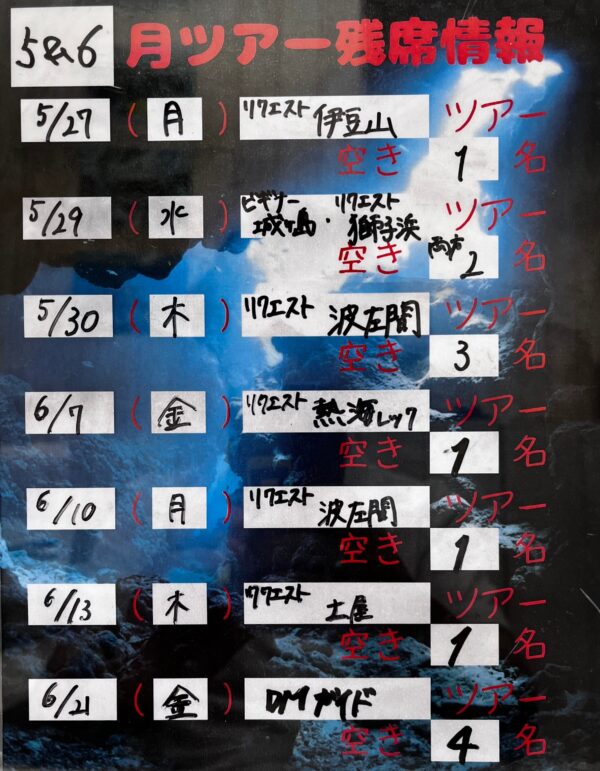 5&6 月ツアー残席情報
5/27 (月) リクエスト 伊豆山 ツアー
空き 1 名
5/29 (水) ビギナー 城ヶ島・リクエスト 獅子浜 ツアー
空き 両方 2 名
5/30 (木) リクエスト 波左間 ツアー
空き 3 名
6/7 (金) リクエスト 熱海レック ツアー
空き 1 名
6/10 (月) リクエスト 波左間 ツアー
空き 1 名
6/13 (木) リクエスト 土屋 ツアー
空き 1 名
6/21 (金) DMガイド ツアー
空き 4 名